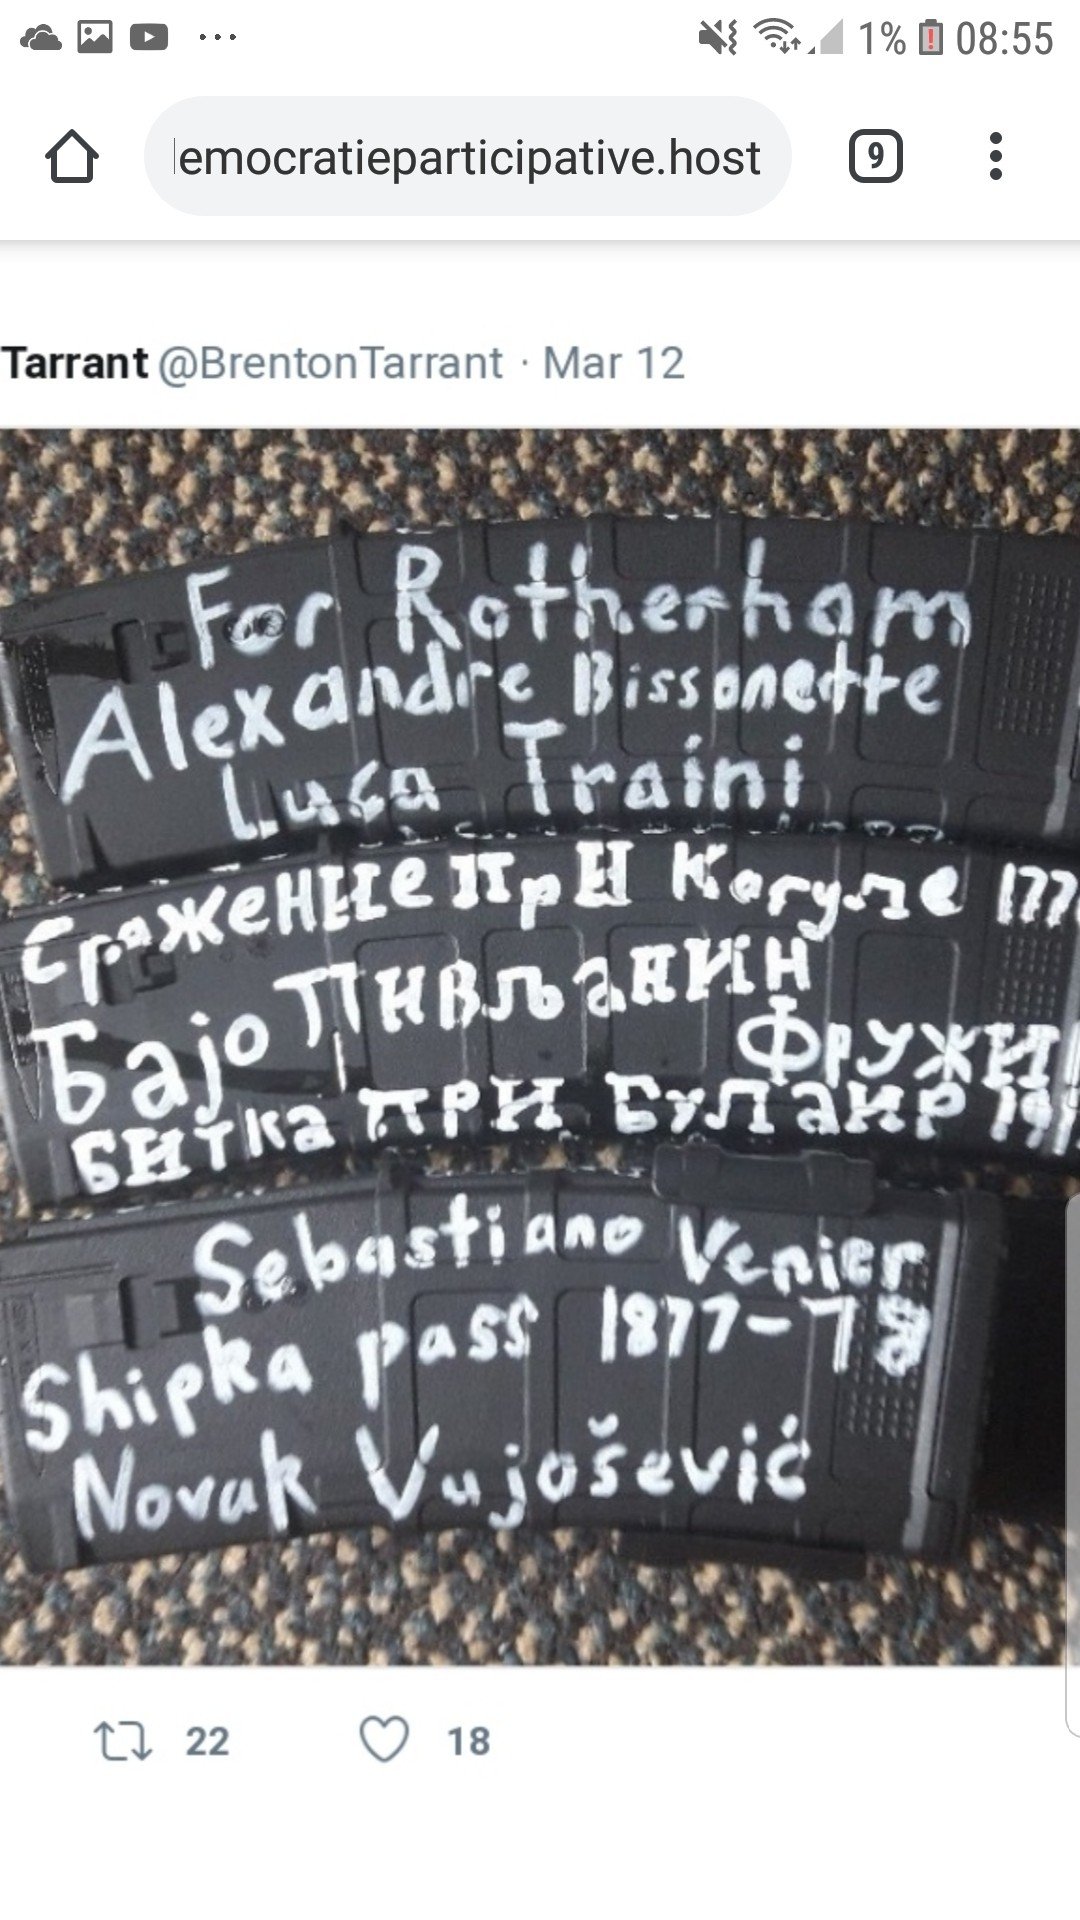 1% 08:55
emocratieparticipative.host
9
Tarrant @BrentonTarrant · Mar 12
For Rotherham
Alexandre Bissonette
Luca Traini
Сражение при Кагуле 177
Бајо Пивљанин
Фружи
Битка при Булаир
Sebastiano Venier
Shipka pass 1877-78
Novak Vujošević
22 18